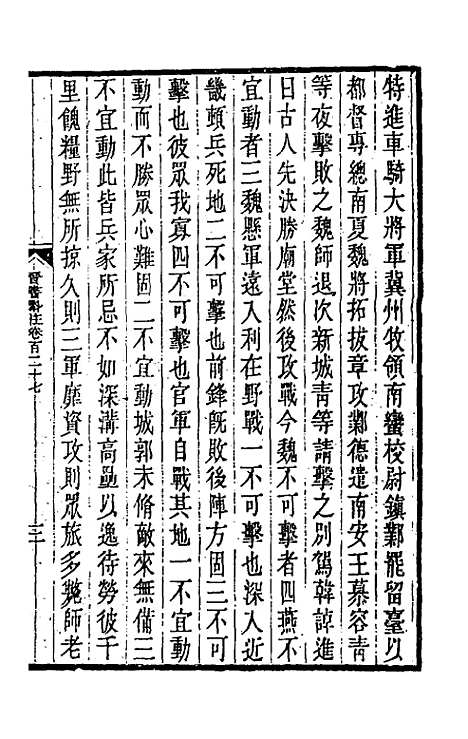 特進車騎大將軍冀州牧領南蠻校尉鎮鄴罷留臺以
都督專總南夏魏將拓拔章攻鄴德遣南安王慕容青
等夜擊敗之魏師退次新城青等請擊之別駕韓𧨳進
曰古人先決勝廟堂然後攻戰今魏不可擊者四燕不
宜動者三魏懸軍遠入利在野戰一不可擊也深入近
畿頓兵死地二不可擊也前鋒旣敗後陣方固三不可
擊也彼眾我寡四不可擊也官軍自戰其地一不宜動
動而不勝眾心難固二不宜動城郭未脩敵來無備三
不宜動此皆兵家所忌不如深溝高壘以逸待勞彼千
里餽糧野無所掠久則三軍靡資攻則眾旅多斃師老
晉書斠注卷百二十七